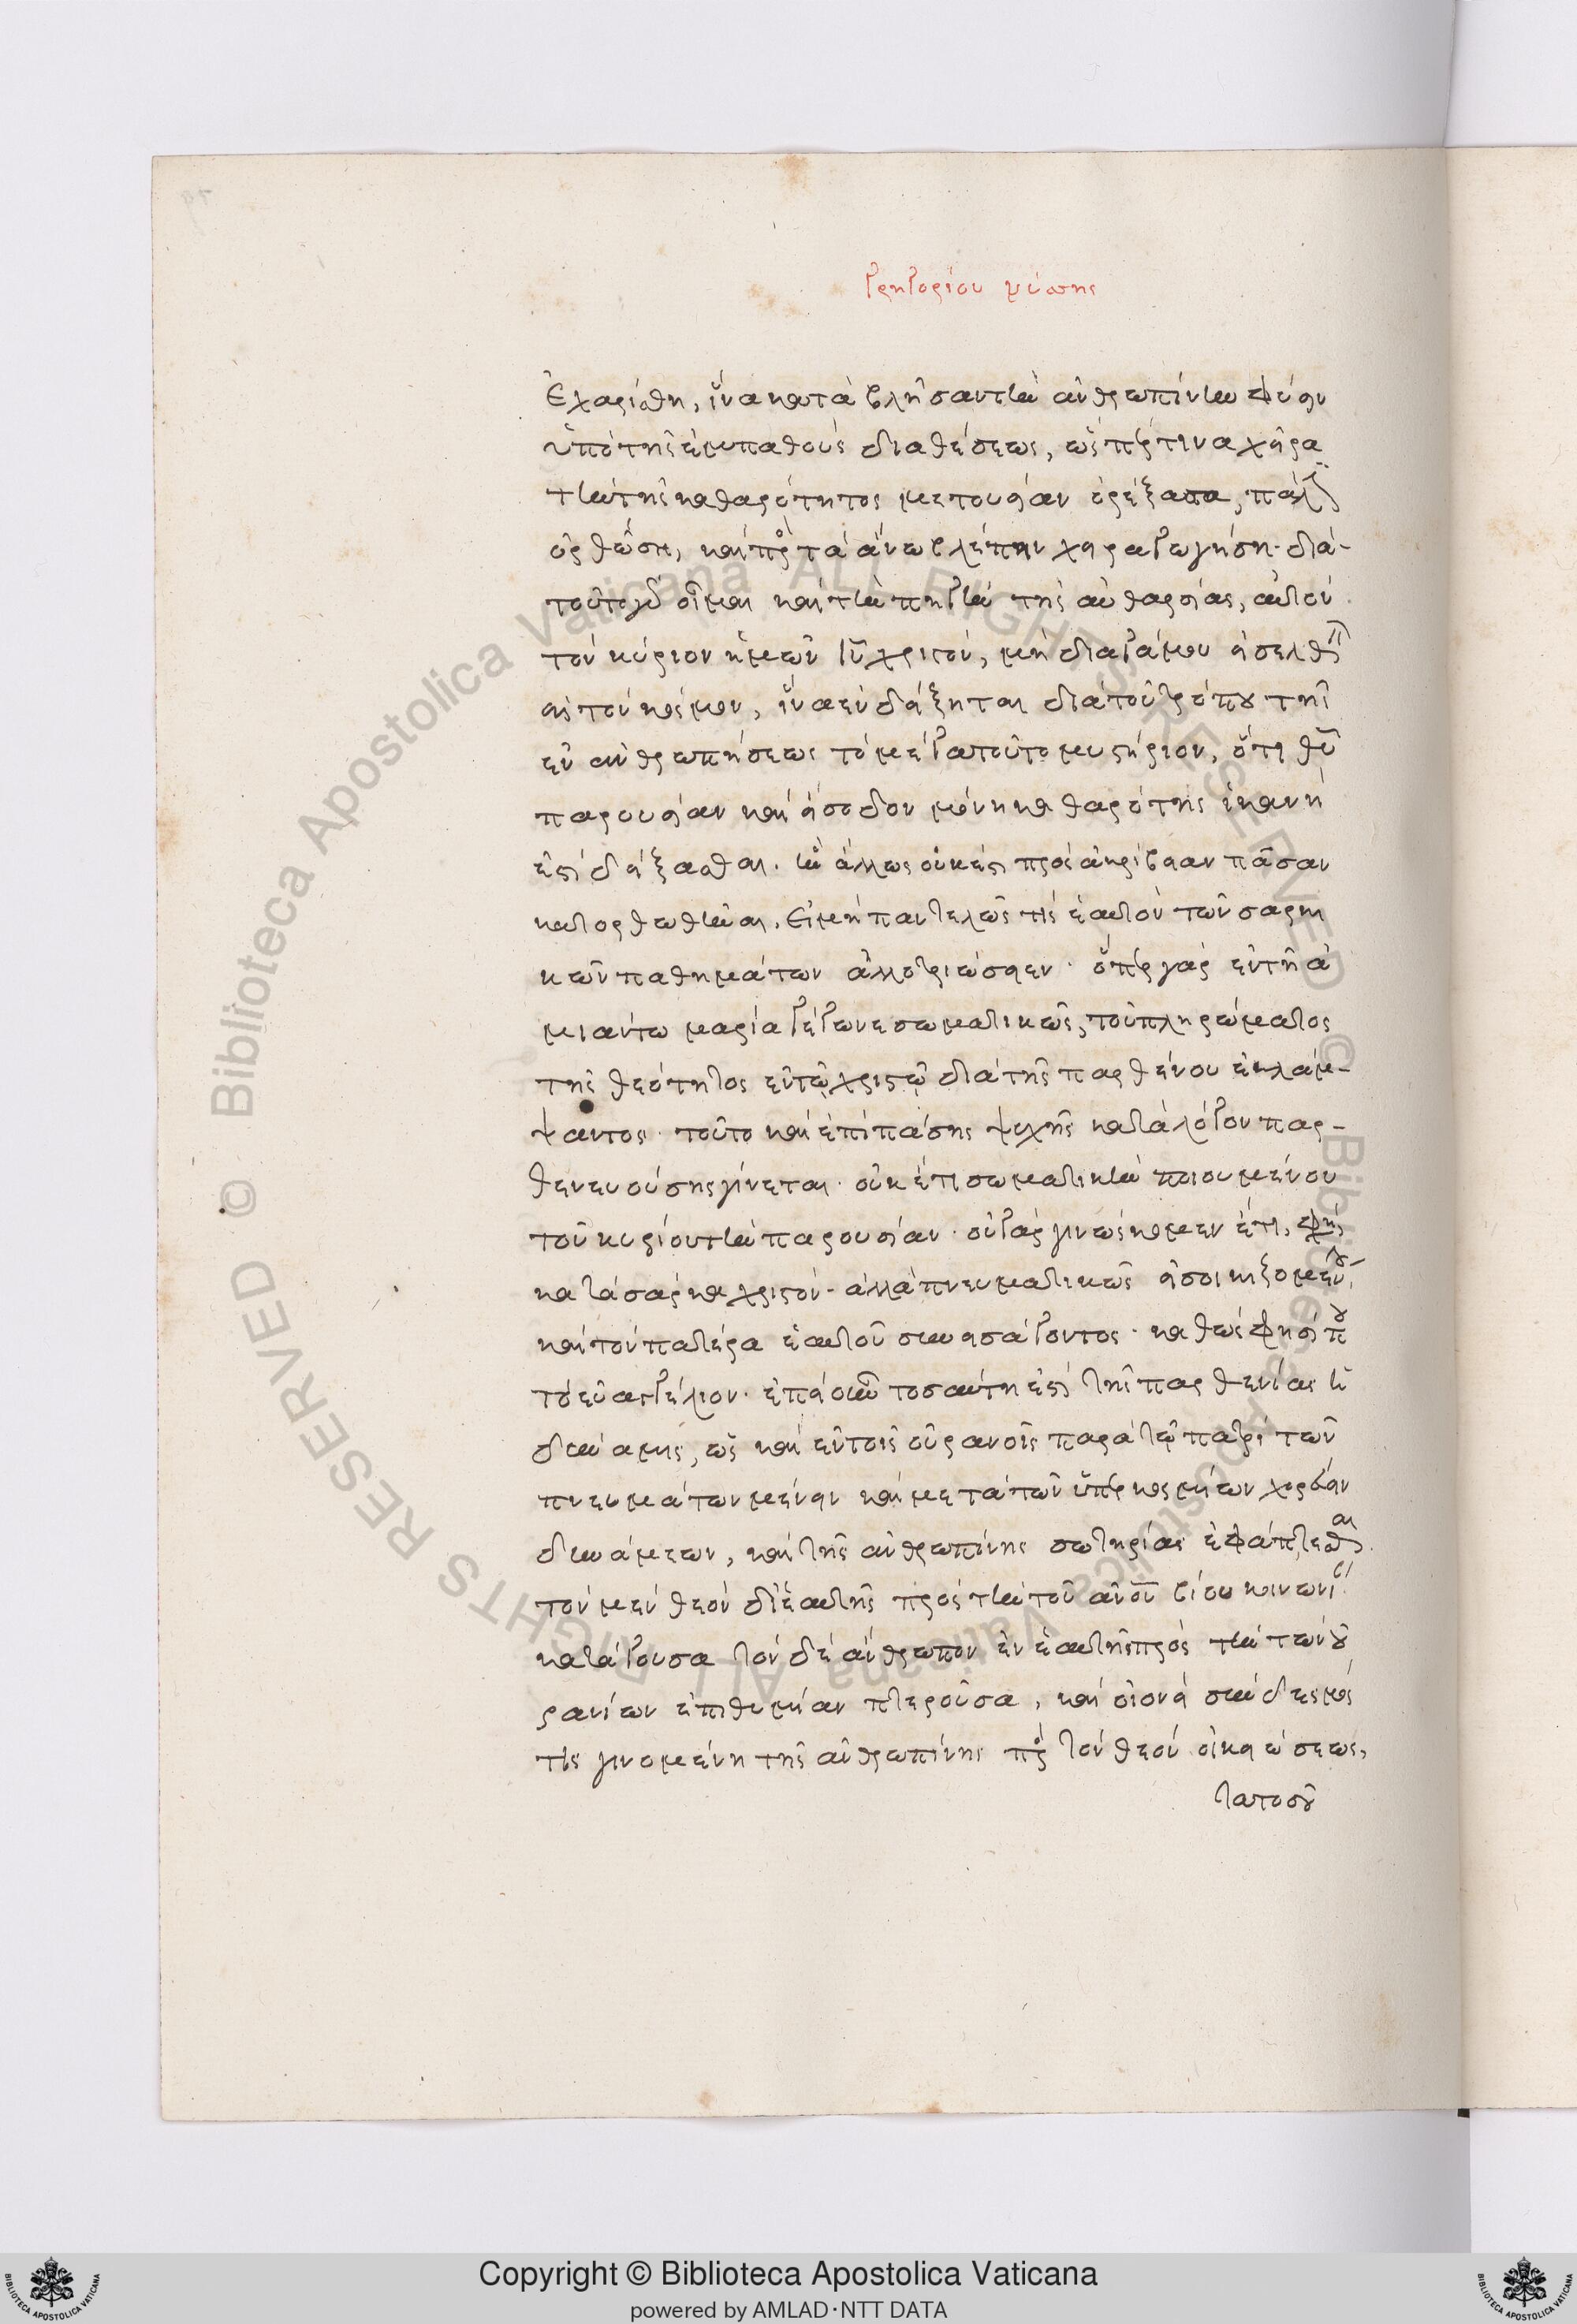 Γρηγορίου νύσσης
ἐχαρίσθη, ἵνα καταβληθεῖσαν τὴν ἀνθρωπίνην φύσιν
ὑπὸ τῆς ἐμπαθοῦς διαθέσεως, ὥσπερ τινα χεῖρα
τὴν τῆς καθαρότητος μετουσίαν ὀρέξασα, πάλιν
ὀρθώση, καὶ πρὸς τὰ ἄνω βλέπειν χειραγωγήση. διὰ-
τοῦτο γὰρ οἶμαι καὶ τὴν πηγὴν τῆς ἀφθαρσίας, αὐτὸν
τὸν κύριον ἡμῶν ιῦ χριστὸν, μὴ διὰ γάμου εἰσελθεῖν
εἰς τὸν κόσμον, ἵνα ἐνδείξηται διὰ τοῦ τρόπου τῆς
ἐνανθρωπήσεως τὸ μέγα τοῦτο μυστήριον, ὅτι θῦ
παρουσίαν καὶ εἴσοδον μόνη καθαρότης ἱκανὴ
ἐστὶ δείξασθαι. ἣν ἄλλως οὐκ ἔστι πρὸς ἀκρίβειαν πᾶσαν
κατορθωθῆναι. εἰ μὴ παντελῶς τὶς ἑαυτὸν τῶν σαρκι
κῶν παθημάτων ἀλλοτριώσειεν. ὅπερ γὰρ ἐν τῆ ἀ
μιάντω μαρία γέγονε σωματικῶς, τοῦ πληρώματος
τῆς θεότητος ἐν τῷ χριστῷ διὰ τῆς παρθένου ἐκλάμ-
ψαντος. τοῦτο καὶ ἐπὶ πάσης ψυχῆς κατὰ λόγον παρ-
θενευούσης γίνεται. οὐκ ἔτι σωματικὴν ποιουμένου
τοῦ κυρίου τὴν παρουσίαν. οὐ γὰρ γινώσκομεν ἔτι, φησὶ
κατὰ σάρκα χριστόν. ἀλλὰ πνευματικῶς εἰσοικιζομένου,
καὶ τὸν πατέρα ἑαυτοῦ συνεισάγοντος. καθώς φησί που
τὸ εὐαγγέλιον. ἐπεὶ οὖν τοσαύτη ἐστὶ τῆς παρθενίας ἡ
δύναμις, ὡς καὶ ἐν τοῖς οὐρανοῖς παρὰ τῷ πατρὶ τῶν
πνευμάτων μένειν καὶ μετὰ τῶν ὑπερκοσμίων χορεύειν
δυνάμεων, καὶ τῆς ἀνθρωπίνης σωτηρίας ἐφάπτεσθαι
τὸν μὲν θεὸν δι' ἑαυτῆς πρὸς τὴν τοῦ ἀνοῦ βίου κοινωνί
κατάγουσα τὸν δὲ ἄνθρωπον ἐν ἑαυτῆ πρὸς τὴν τῶν οὐ
ρανίων ἐπιθυμίαν πτεροῦσα, καὶ οἱονεὶ σύνδεσμός
τις γινομένη τῆς ἀνθρωπίνης πρὸς τὸν θεὸν οἰκειώσεως,
τὰ τοσοῦ
Copyright © Biblioteca Apostolica Vaticana
powered by AMLAD·NTT DATA